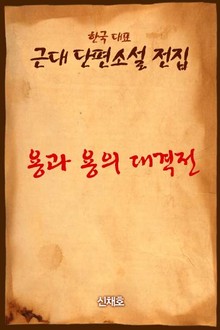 한국 대표
근대 단편소설 전집
용과 용의 대격전
신채호